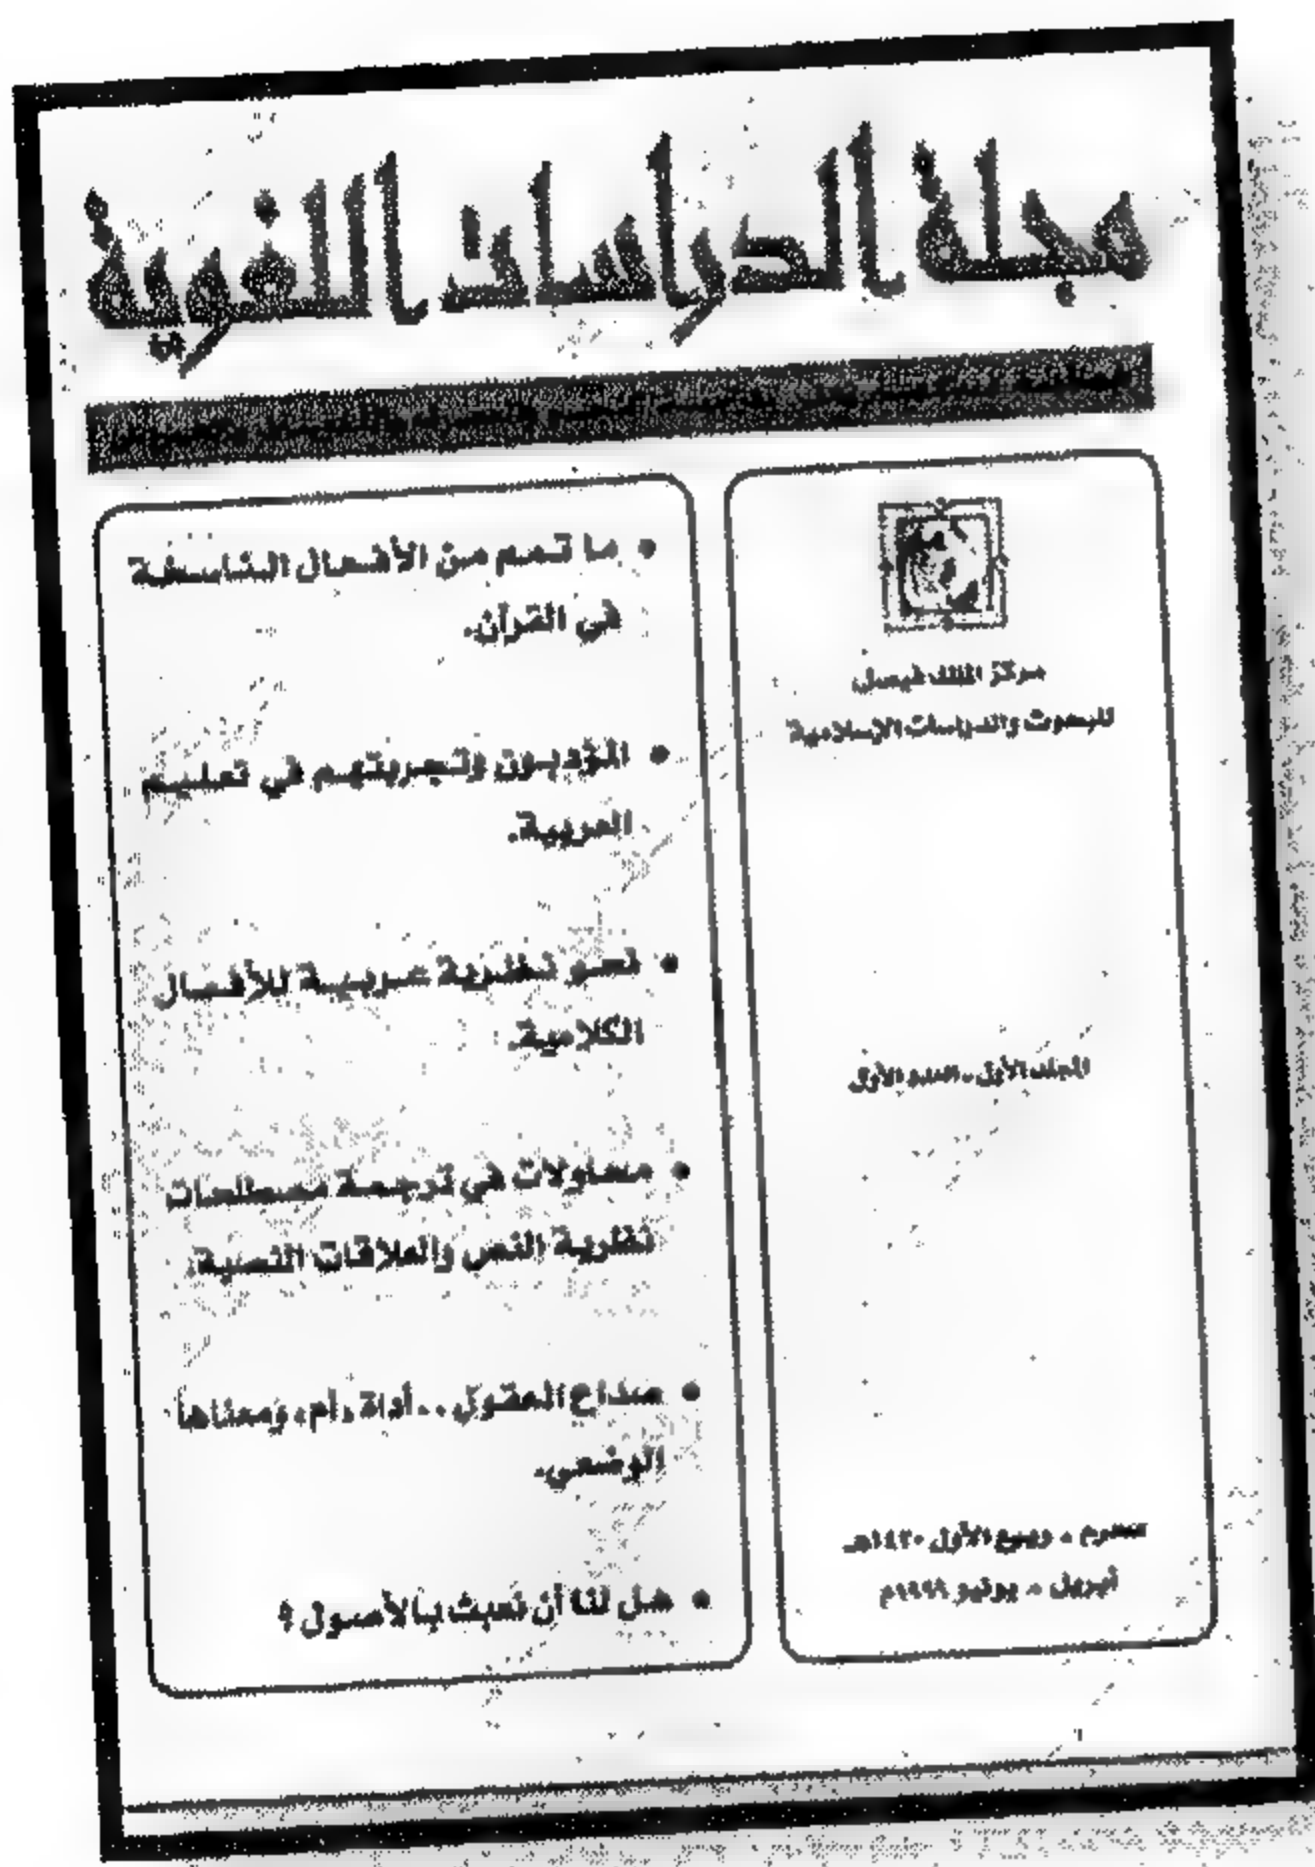 مجلة الدراسات اللغوية
مركز الملك فيصل
للبحوث والدراسات الإسلامية
المجلد الأول - العدد الأول
محرم - ربيع الأول ١٤٢٠هـ
أبريل - يونيو ١٩٩٩م
• ما تمم من الأفعال الناسخة
في القرآن.
• المؤدبون وتجربتهم في تعليم
العربية.
• نحو نظرية عربية للأفعال
الكلامية.
• محاولات في ترجمة مصطلحات
نظرية النص والعلاقات النصية.
• صداع العقول . . أداة «أم» ومعناها
الوضعي.
• هل لنا أن نعبث بالأصول ؟